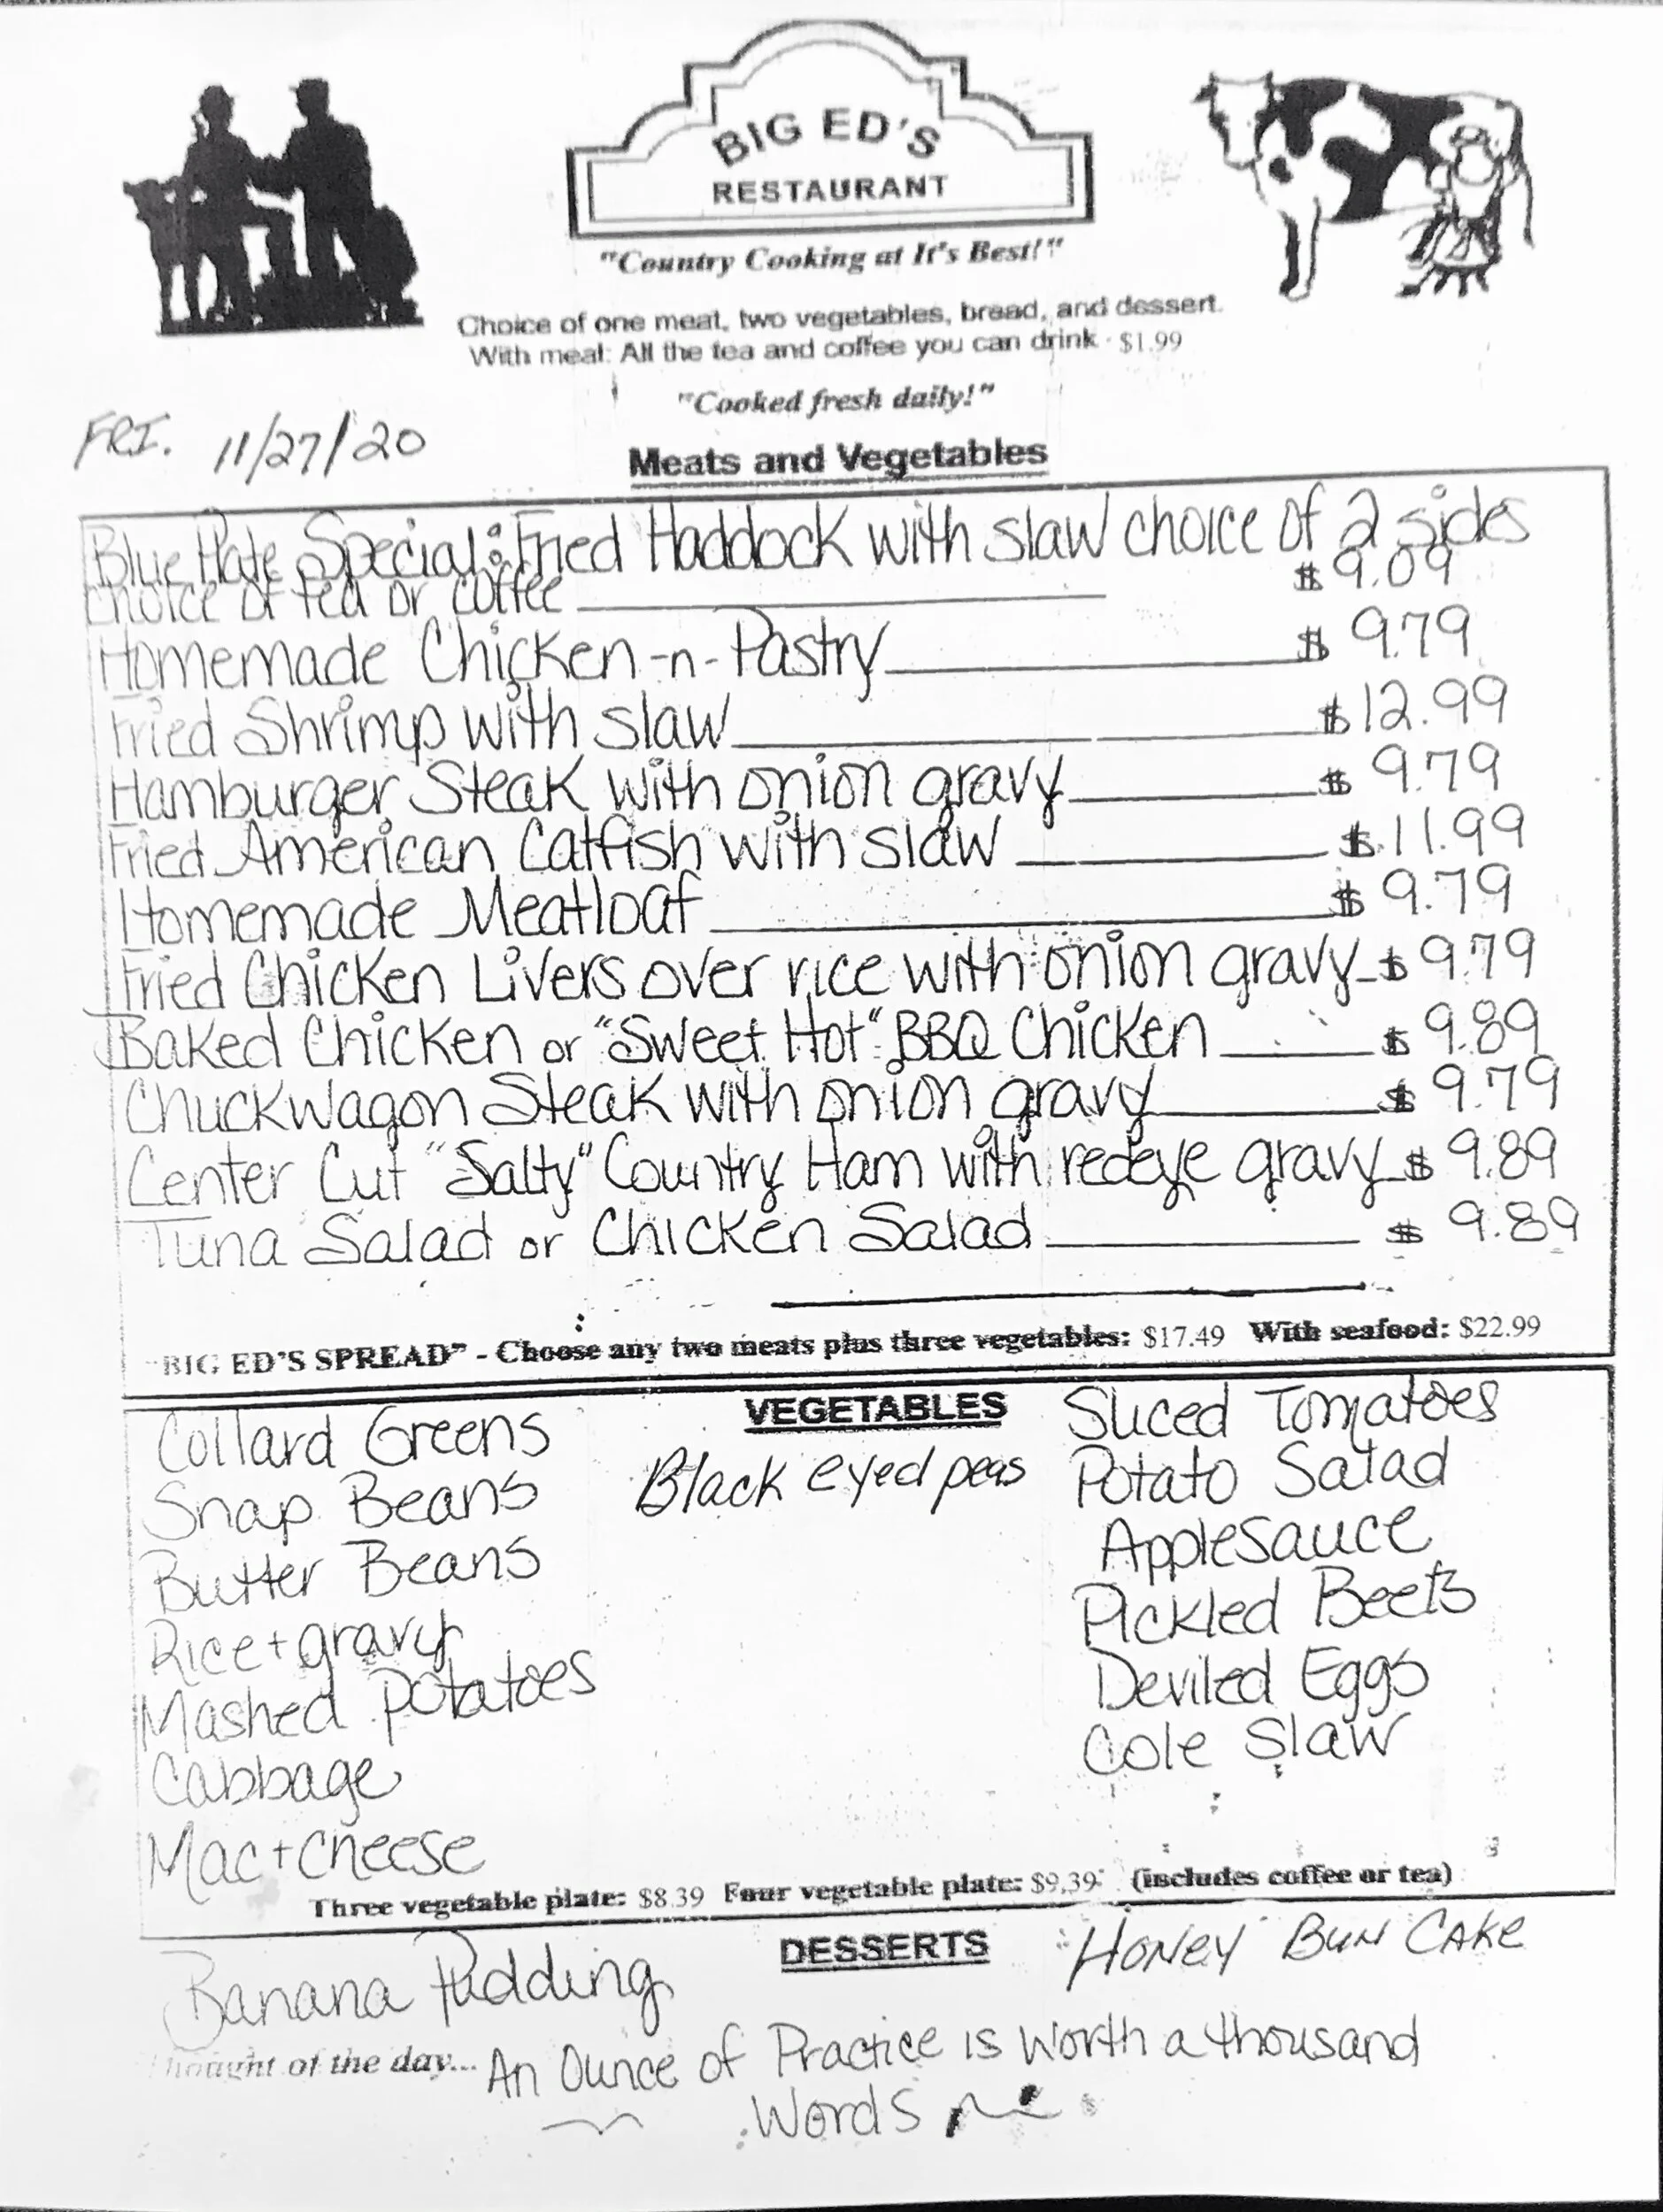 BIG ED'S
RESTAURANT
"Country Cooking at It's Best!"
Choice of one meat, two vegetables, bread, and dessert.
With meal: All the tea and coffee you can drink - $1.99
"Cooked fresh daily!"
FRI. 11/27/20
Meats and Vegetables
Blue Plate Special: Fried Haddock with slaw choice of 2 sides
choice of tea or coffee $9.09
Homemade Chicken-n-Pastry $9.79
Fried Shrimp with slaw $12.99
Hamburger Steak with onion gravy $9.79
Fried American Catfish with slaw $11.99
Homemade Meatloaf $9.79
Fried Chicken Livers over rice with onion gravy $9.79
Baked Chicken or "Sweet Hot" BBQ Chicken $9.89
Chuckwagon Steak with onion gravy $9.79
Center Cut "Salty" Country Ham with redeye gravy $9.89
Tuna Salad or Chicken Salad $9.89
"BIG ED'S SPREAD" - Choose any two meats plus three vegetables: $17.49 With seafood: $22.99
VEGETABLES
Collard Greens
Snap Beans
Butter Beans
Rice + gravy
Mashed Potatoes
Cabbage
Mac + Cheese
Black eyed peas
Sliced Tomatoes
Potato Salad
Applesauce
Pickled Beets
Deviled Eggs
Cole Slaw
Three vegetable plate: $8.39 Four vegetable plate: $9.39 (includes coffee or tea)
DESSERTS
Banana Pudding
HONEY BUN CAKE
Thought of the day... An Ounce of Practice is Worth a thousand
Words